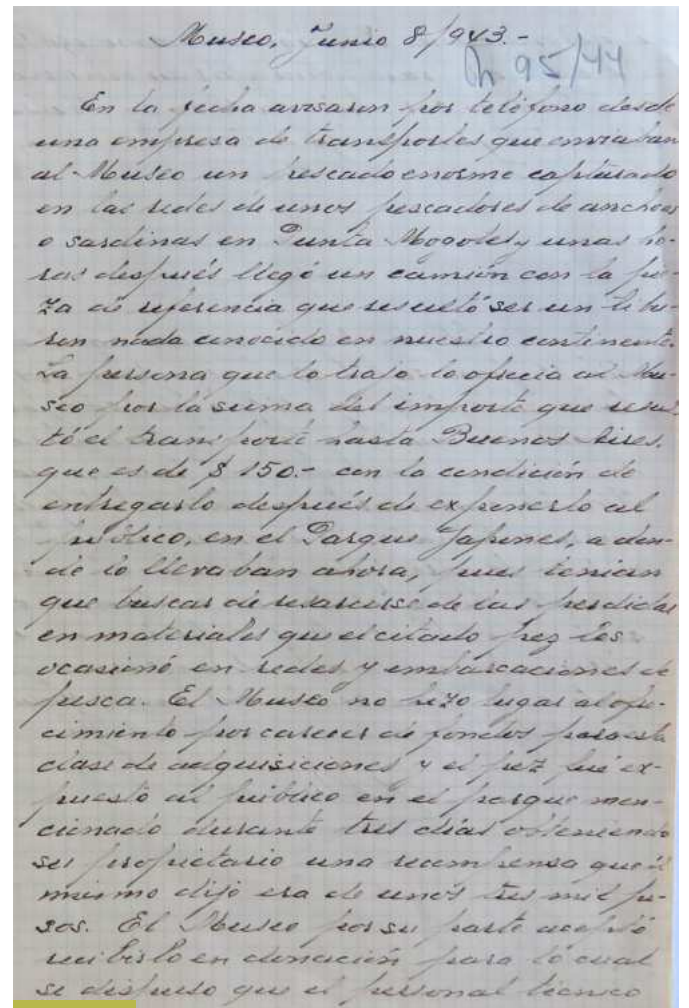 Museo, Junio 8/943.-
h 95/44
En la fecha avisaron por teléfono desde
una empresa de transportes que enviaban
al Museo un pescado enorme capturado
en las redes de unos pescadores de anchoas
o sardinas en Punta Mogotes y unas ho-
ras después llegó un camión con la pie-
za de referencia que resultó ser un tibu-
ron nada conocido en nuestro continente.
La persona que lo trajo lo ofrecia al Mu-
seo por la suma del importe que resul-
tó el transporte hasta Buenos Aires,
que es de $ 150.- con la condición de
entregarlo después de exponerlo al
público, en el Parque Japones, a don-
de lo llevaban ahora, pues tenian
que buscar de resarcirse de las perdidas
en materiales que el citado pez les
ocasionó en redes y embarcaciones de
pesca. El Museo no hizo lugar al ofre-
cimiento por carecer de fondos para esta
clase de adquisiciones y el pez fué ex-
puesto al público en el parque men-
cionado durante tres dias obteniendo
su propietario una recompensa que él
mismo dijo era de unos tres mil pe-
sos. El Museo por su parte aceptó
recibirlo en donación para lo cual
se dispuso que el personal técnico